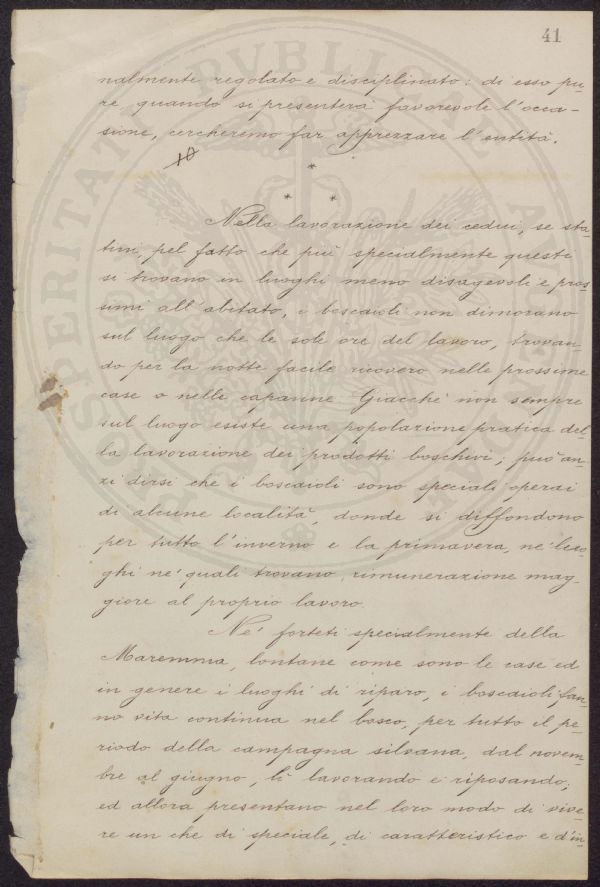 41
nalmente regolato e disciplinato: di esso pu-
re, quando si presenterà favorevole l'occa-
sione, cercheremo far apprezzare l'entità.
10
*
* *
Nella lavorazione dei cedui, se sta-
tini, pel fatto che più specialmente questi
si trovano in luoghi meno disagevoli e pros-
simi all'abitato, i boscaioli non dimorano
sul luogo che le sole ore del lavoro, trovan-
do per la notte facile ricovero nelle prossime
case o nelle capanne. Giacchè non sempre
sul luogo esiste una popolazione pratica del-
la lavorazione dei prodotti boschivi; può an-
zi dirsi che i boscaioli sono speciali operai
di alcune località, donde si diffondono
per tutto l'inverno e la primavera, ne' luo-
ghi ne' quali trovano rimunerazione mag-
giore al proprio lavoro.
Ne' forteti specialmente della
Maremma, lontane come sono le case ed
in genere i luoghi di riparo, i boscaioli fan-
no vita continua nel bosco, per tutto il pe-
riodo della campagna silvana, dal novem-
bre al giugno, lì lavorando e riposando;
ed allora presentano nel loro modo di vive-
re un che di speciale, di caratteristico e d'in-
PROSPERITATI PVBLICAE AVGENDAE